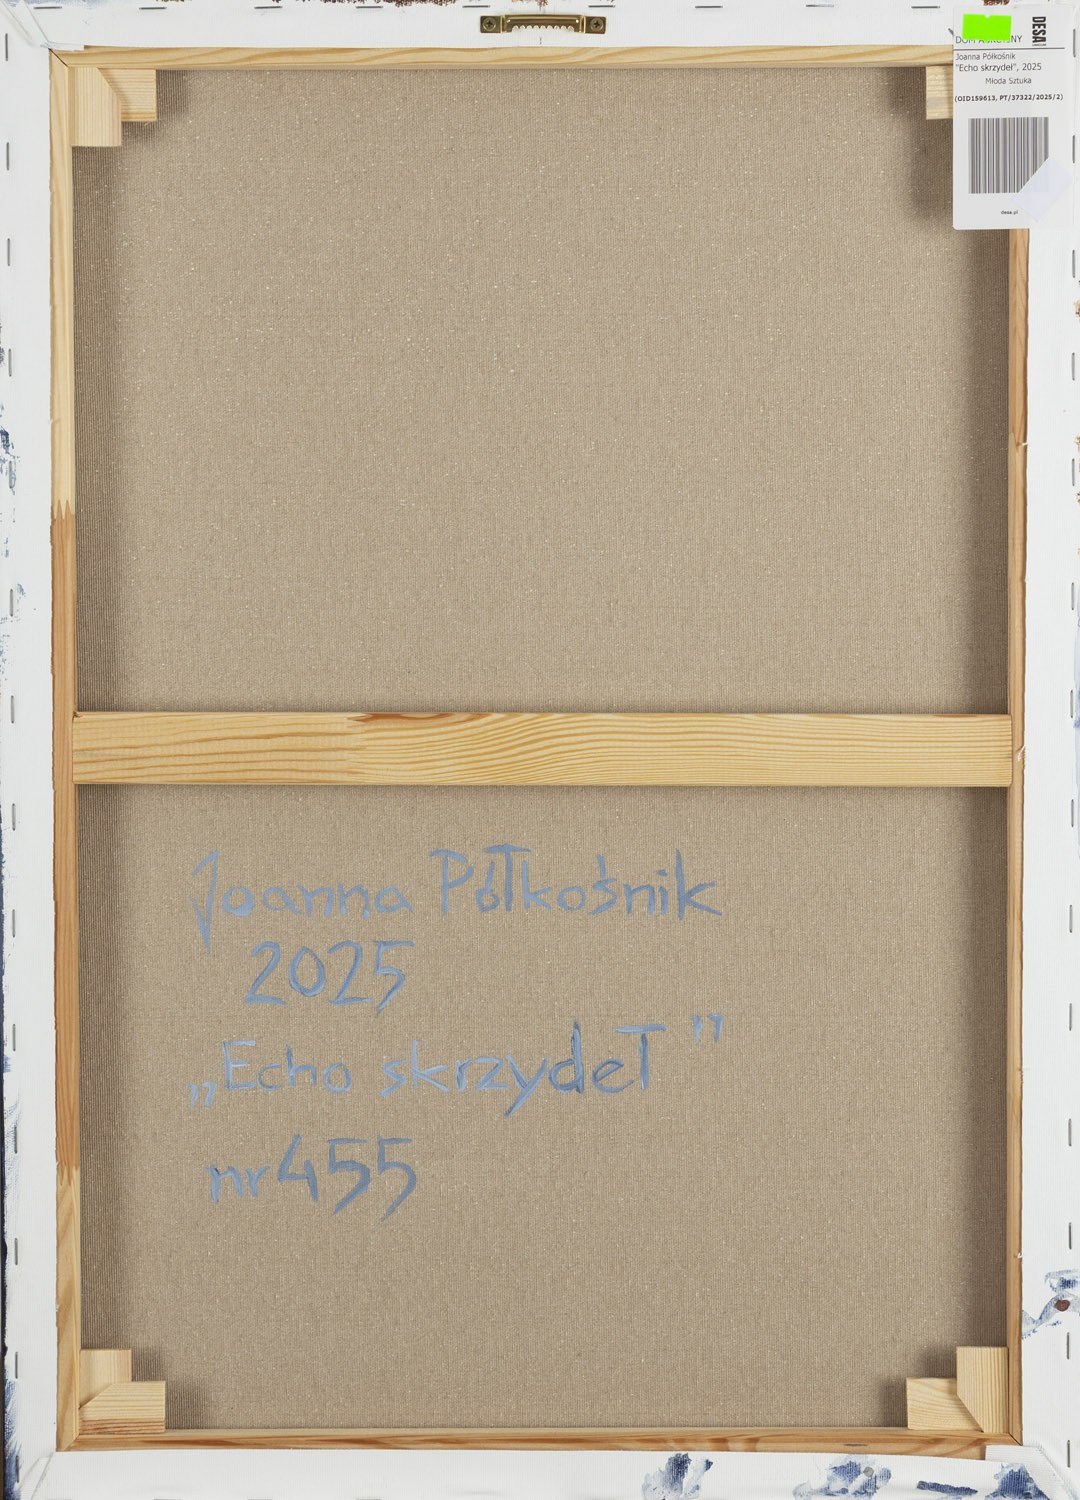 DESA
Joanna Półkośnik
"Echo skrzydeł", 2025
Młoda Sztuka
(OID159613, PT/37322/2025/2)
desa.pl
Joanna Półkośnik
2025
„Echo skrzydeł”
nr 455